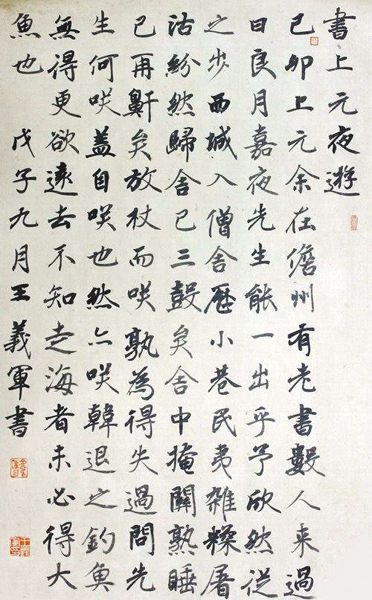 書上元夜遊
己卯上元余在儋州有老書數人来過
曰良月嘉夜先生能一出乎予欣然從
之步西城入僧舍歷小巷民夷雜糅屠
沽紛然歸舍已三鼓矣舍中掩關熟睡
已再鼾矣放杖而咲孰為得失過問先
生何咲蓋自咲也然亦咲韓退之釣魚
無得更欲遠去不知走海者未必得大
魚也 戊子九月王義軍書